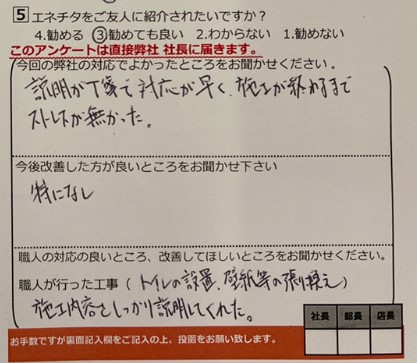 5 エネチタをご友人に紹介されたいですか？
4.勧める ③勧めても良い 2.わからない 1.勧めない
このアンケートは直接弊社 社長に届きます。
今回の弊社の対応でよかったところをお聞かせください。
説明が丁寧で対応が早く、施工が終わるまで
ストレスが無かった。
今後改善した方が良いところをお聞かせ下さい
特になし
職人の対応の良いところ、改善してほしいところをお聞かせください。
職人が行った工事（トイレの設置、壁紙等の張り換え）
施工内容をしっかり説明してくれた。
社長 部長 店長
お手数ですが裏面記入欄をご記入の上、投函をお願い致します。